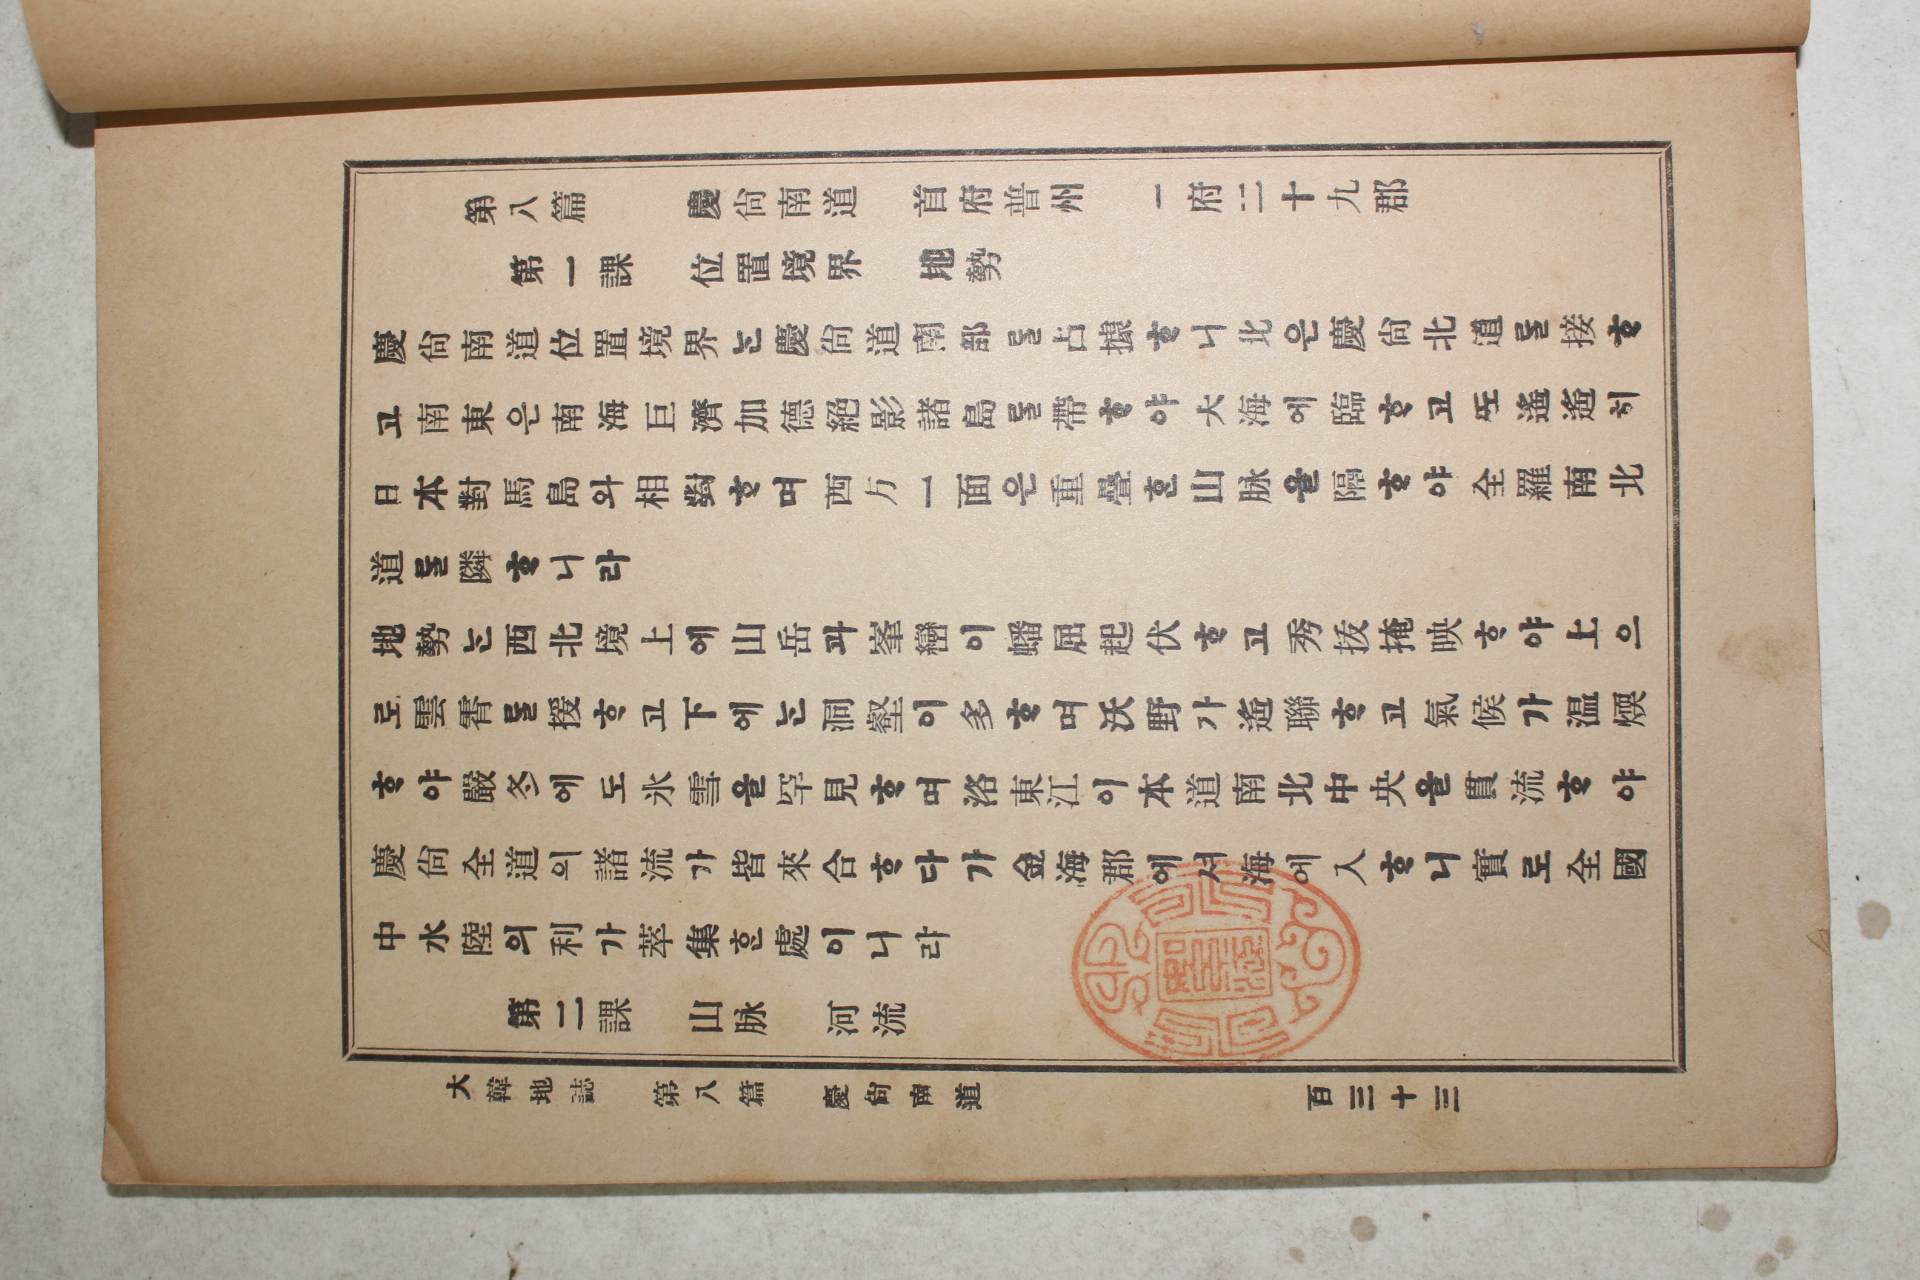 第八篇 慶尙南道 首府普州 一府二十九郡
第一課 位置境界 地勢
慶尙南道位置境界ᄂᆞᆫ慶尙道南部ᄅᆞᆯ占據ᄒᆞ니北은慶尙北道ᄅᆞᆯ接ᄒᆞ
고南東은南海巨濟加德絕影諸島ᄅᆞᆯ帶ᄒᆞ야大海에臨ᄒᆞ고ᄯᅩ遙遙히
日本對馬島와相對ᄒᆞ며西方一面은重疊ᄒᆞᆫ山脉을隔ᄒᆞ야全羅南北
道ᄅᆞᆯ隣ᄒᆞ니라
地勢ᄂᆞᆫ西北境上에山岳과峯巒이蟠屈起伏ᄒᆞ고秀拔掩映ᄒᆞ야上으
로雲霄ᄅᆞᆯ援ᄒᆞ고下에ᄂᆞᆫ洞壑이多ᄒᆞ며沃野가遙聯ᄒᆞ고氣候가温煗
ᄒᆞ야嚴冬에도氷雪을罕見ᄒᆞ며洛東江이本道南北中央을貫流ᄒᆞ야
慶尙全道의諸流가皆來合ᄒᆞ다가金海郡에셔海에入ᄒᆞ니實로全國
中水陸의利가萃集ᄒᆞᆫ處이니라
第二課 山脉 河流
大韓地誌 第八篇 慶尙南道 百三十三